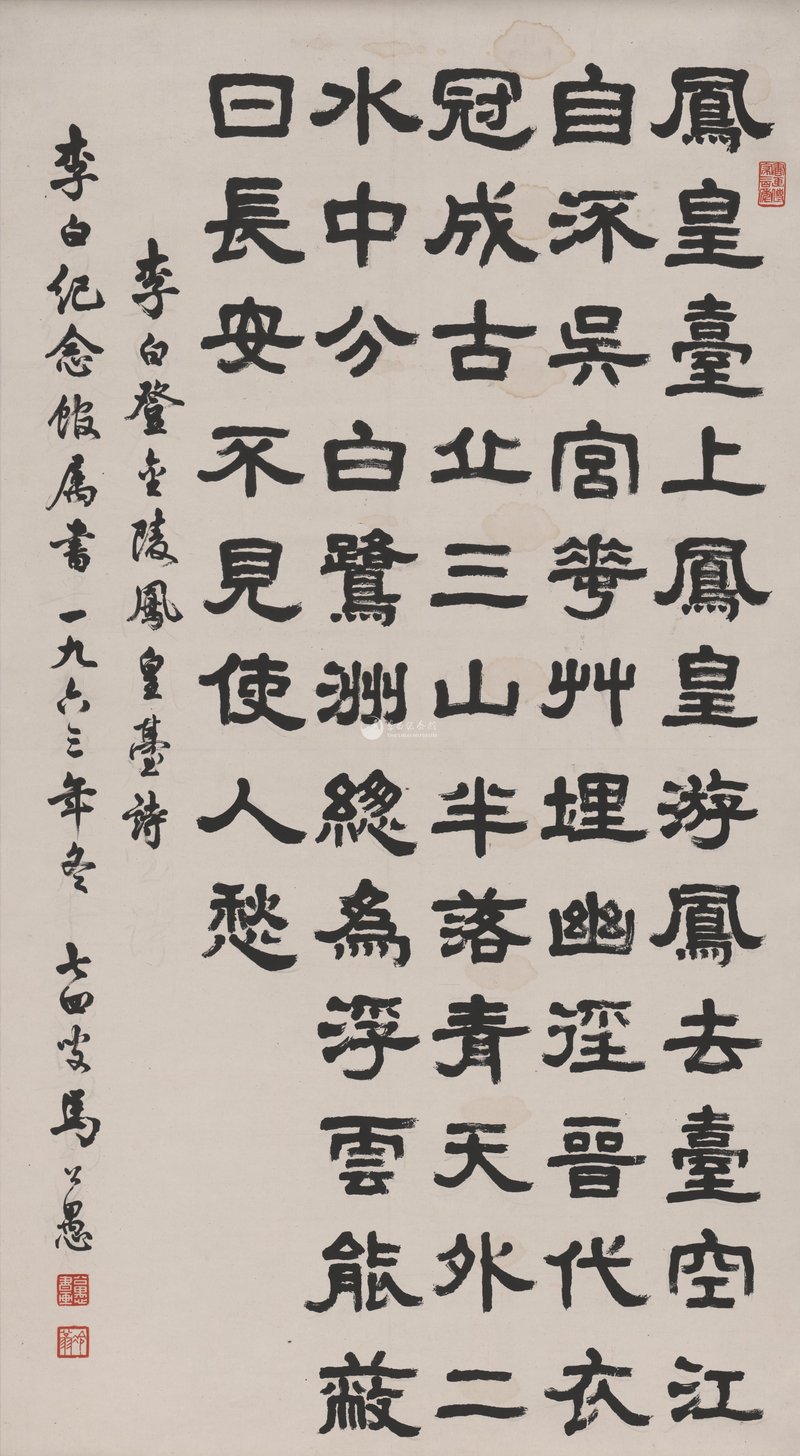 鳳皇臺上鳳皇游鳳去臺空江
自流吳宮華艸埋幽徑晉代衣
冠成古丠三山半落青天外二
水中分白鷺洲總為浮雲能蔽
日長安不見使人愁
李白登金陵鳳皇臺詩
李白纪念館属書一九六三年冬 七四叟馬公愚
公愚書畫